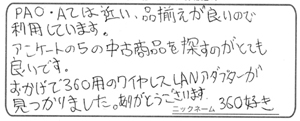 PAO・Aでは近い、品揃えが良いので
利用しています。
アンケートの5の中古商品を探すのがとても
良いです。
おかげで360用のワイヤレスLANアダプターが
見つかりました。ありがとうございます
ニックネーム 360好き